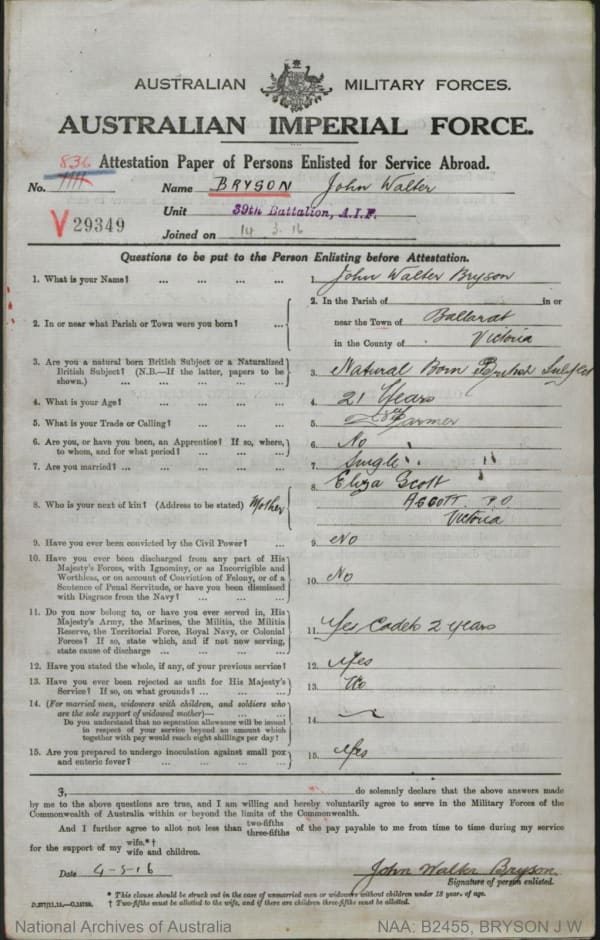 AUSTRALIAN MILITARY FORCES.
AUSTRALIAN IMPERIAL FORCE.
836 Attestation Paper of Persons Enlisted for Service Abroad.
No. Name BRYSON John Walter
V 29349
Unit 39th Battalion, A.I.F.
Joined on 14 3 16
Questions to be put to the Person Enlisting before Attestation.
1. What is your Name? ... ... ... ... 1. John Walter Bryson
2. In or near what Parish or Town were you born? ... 2. In the Parish of in or
near the Town of Ballarat
in the County of Victoria
3. Are you a natural born British Subject or a Naturalized
British Subject? (N.B.—If the latter, papers to be
shown.) ... ... ... ... 3. Natural Born British Subject
4. What is your Age? ... ... ... 4. 21 Years
5. What is your Trade or Calling? ... ... 5. Farmer
6. Are you, or have you been, an Apprentice? If so, where,
to whom, and for what period? ... ... 6. No
7. Are you married? ... ... ... ... 7. Single
8. Who is your next of kin? (Address to be stated) Mother 8. Eliza Scott
Ascott P.O
Victoria
9. Have you ever been convicted by the Civil Power? ... 9. No
10. Have you ever been discharged from any part of His
Majesty's Forces, with Ignominy, or as Incorrigible and
Worthless, or on account of Conviction of Felony, or of a
Sentence of Penal Servitude, or have you been dismissed
with Disgrace from the Navy? ... ... 10. No
11. Do you now belong to, or have you ever served in, His
Majesty's Army, the Marines, the Militia, the Militia
Reserve, the Territorial Force, Royal Navy, or Colonial
Forces? If so, state which, and if not now serving,
state cause of discharge ... ... ... 11. Yes Cadets 2 years
12. Have you stated the whole, if any, of your previous service? 12. Yes
13. Have you ever been rejected as unfit for His Majesty's
Service? If so, on what grounds? ... ... 13. No
14. (For married men, widowers with children, and soldiers who
are the sole support of widowed mother)— ... ...
Do you understand that no separation allowance will be issued
in respect of your service beyond an amount which
together with pay would reach eight shillings per day? 14.
15. Are you prepared to undergo inoculation against small pox
and enteric fever? ... ... ... 15. Yes
I, do solemnly declare that the above answers made
by me to the above questions are true, and I am willing and hereby voluntarily agree to serve in the Military Forces of the
Commonwealth of Australia within or beyond the limits of the Commonwealth.
And I further agree to allot not less than two-fifths three-fifths of the pay payable to me from time to time during my service
for the support of my wife.*† wife and children.
Date 4-3-16 John Walter Bryson
Signature of person enlisted.
* This clause should be struck out in the case of unmarried men or widowers without children under 18 years of age.
† Two-fifths must be allotted to the wife, and if there are children three-fifths must be allotted.
National Archives of Australia NAA: B2455, BRYSON J W